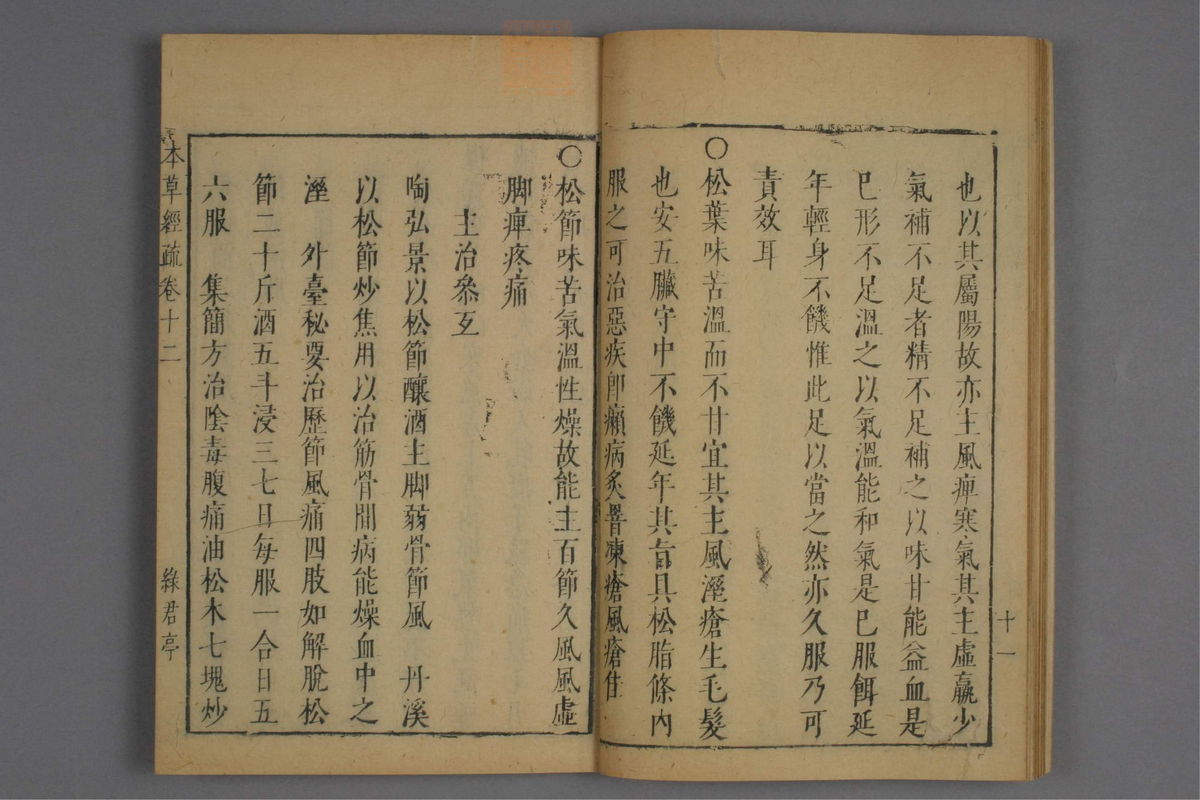 也以其屬陽故亦主風痺寒氣其主虛羸少
氣補不足者精不足補之以味甘能益血是
巳形不足溫之以氣溫能和氣是巳服餌延
年輕身不饑惟此足以當之然亦久服乃可
責效耳
〇松葉味苦溫而不甘宜其主風溼瘡生毛髮
也安五臟守中不饑延年其旨具松脂條內
服之可治惡疾卽癩病炙罯凍瘡風瘡佳
十一
〇松節味苦氣溫性燥故能主百節久風風虛
脚痺疼痛
主治叅互
陶弘景以松節釀酒主脚弱骨節風 丹溪
以松節炒焦用以治筋骨間病能燥血中之
溼 外臺秘要治歷節風痛四肢如解脫松
節二十斤酒五斗浸三七日每服一合日五
六服 集簡方治陰毒腹痛油松木七塊炒
本草經疏卷十二
綠君亭